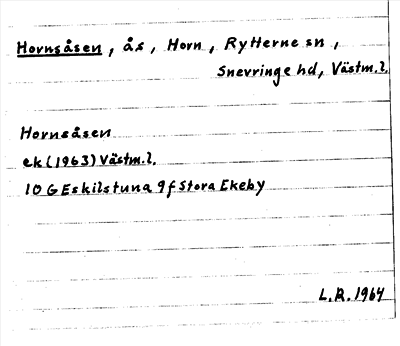 Hornsåsen, ås, Horn, Rytterne sn,
Snevringe hd, Västm.l.
Hornsåsen
ek (1963) Västm.l.
10 G Eskilstuna 9 f Stora Ekeby
L.R. 1964